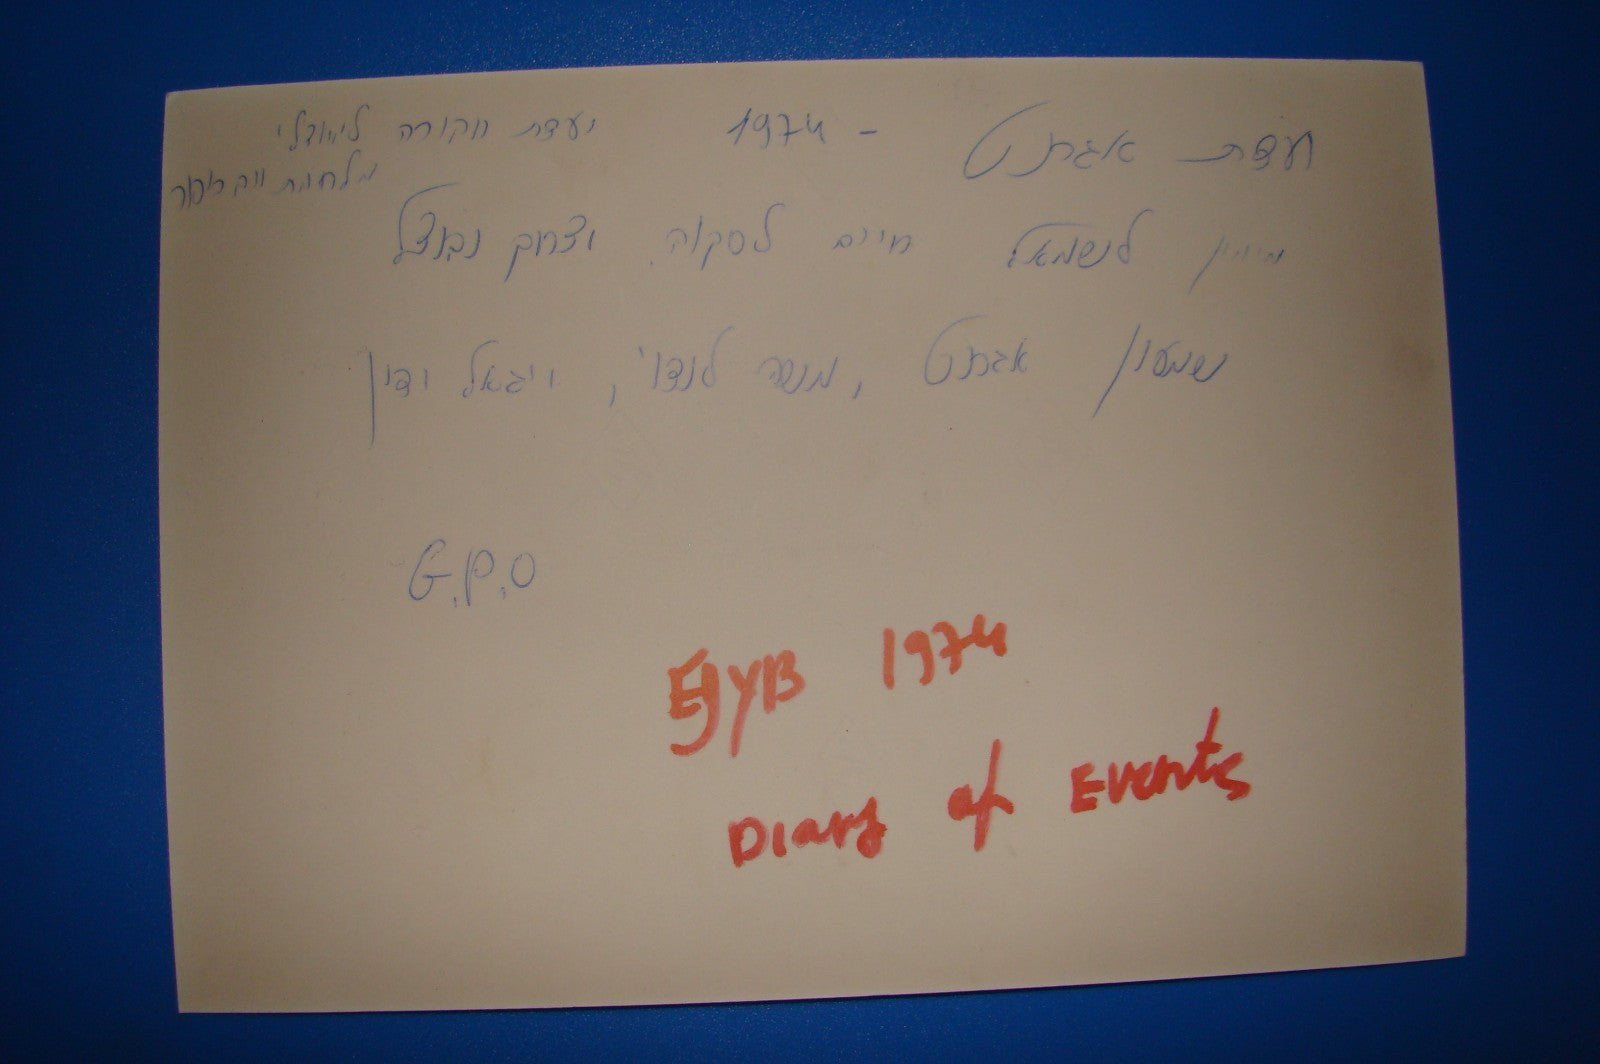 ועדת אגרנט - 1974 ועדת חקירה לאירועי
מלחמת יום כיפור
מימין לשמאל חיים לסקוב יצחק נבנצל
שמעון אגרנט, משה לנדוי, ויגאל ידין
G.P.O
1974
Diary of Events